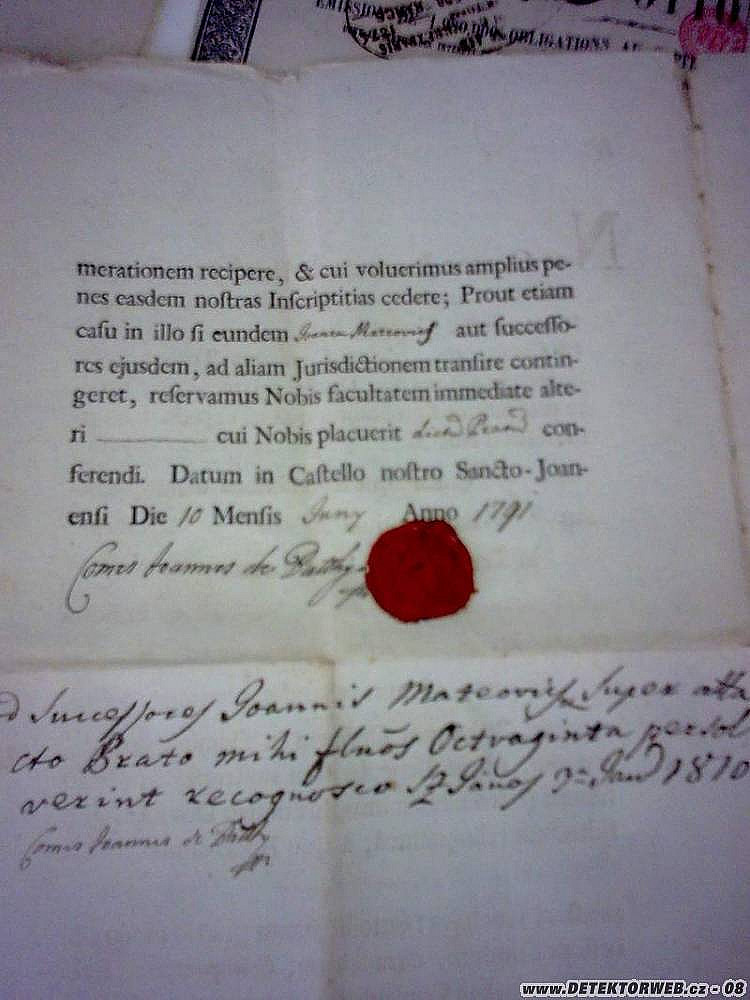 OBLIGATIONS AU
merationem recipere, & cui voluerimus amplius pe-
nes easdem noſtras Inſcriptitias cedere; Prout etiam
caſu in illo ſi eundem Joannem Mateovics aut ſucceſſo-
res ejusdem, ad aliam Jurisdictionem tranſire contin-
geret, reſervamus Nobis facultatem immediate alte-
ri cui Nobis placuerit con-
ferendi. Datum in Caſtello noſtro Sancto-Joan-
enſi Die 10 Menſis Juny Anno 1791
Comes Joannes de Batthy
Successores Joannis Mateovics super atta
cto Prato mihi flnōs Octvaginta persol
verint recognosco Sz János 3 Jan 1810
Comes Joannes de Batthy
www.DETEKTORWEB.cz - 08